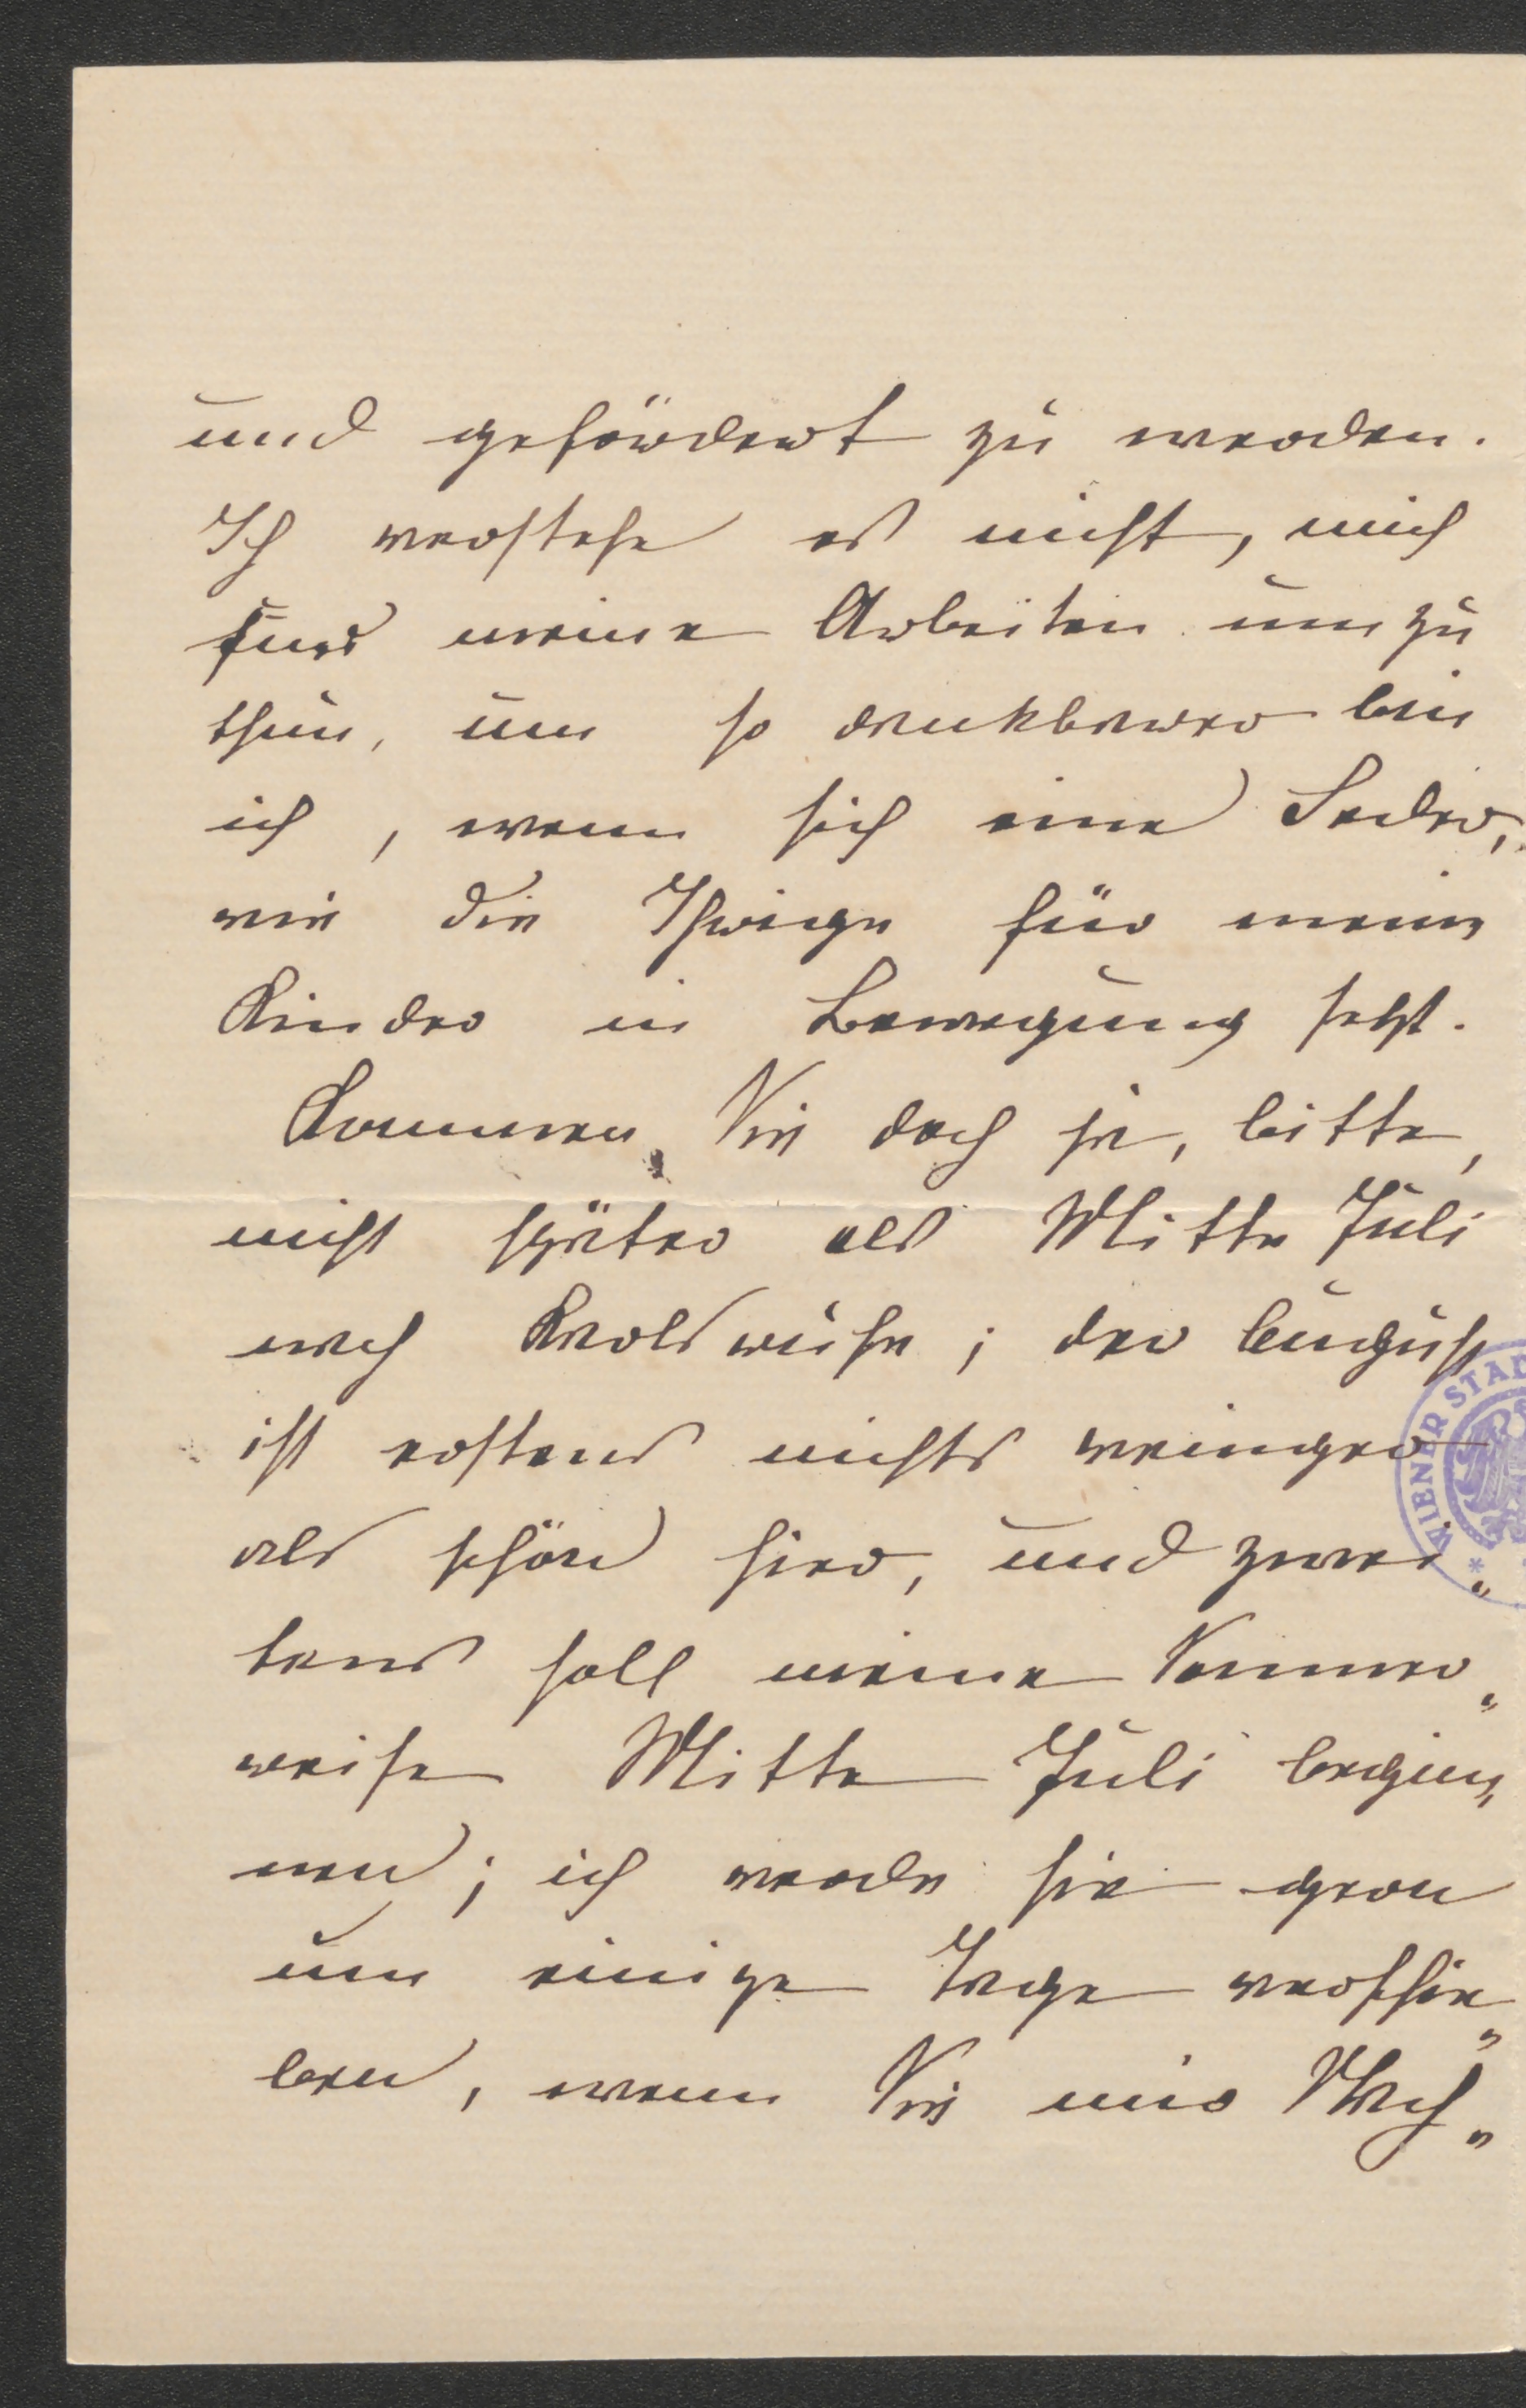 und gefördert zu werden.
Ich verstehe es nicht, mich
für meine Arbeiten umzu
thun, um so dankbarer bin
ich, wenn sich eine Feder,
wie die Ihrige für meine
Kinder in Bewegung setzt.
Kommen Sie doch ja, bitte,
nicht später als Mitte Juli
nach Karlsruhe; der August
ist erstens nichts weniger
als schön hier, und zwei„
tens soll meine Sommer„
reise Mitte Juli begin„
nen; ich werde sie gern
um einige Tage verschie„
ben, wenn Sie mir Nach„
WIENER STAD